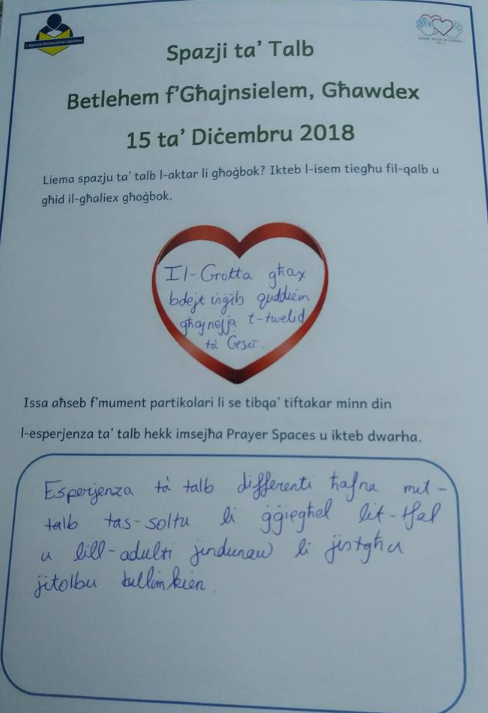 Spazji ta’ Talb
Betlehem f’Għajnsielem, Għawdex
15 ta’ Diċembru 2018
Liema spazju ta’ talb l-aktar li għoġbok? Ikteb l-isem tiegħu fil-qalb u
għid il-għaliex għoġbok.
Il-Grotta għax
bdejt inġib quddiem
għajnejja t-twelid
ta' Ġesù.
Issa aħseb f’mument partikolari li se tibqa’ tiftakar minn din
l-esperjenza ta’ talb hekk imsejħa Prayer Spaces u ikteb dwarha.
Esperjenza ta' talb differenti ħafna mit-
talb tas-soltu li ġġiegħel lit-tfal
u lill-adulti jindunaw li jistgħu
jitolbu kullimkien.